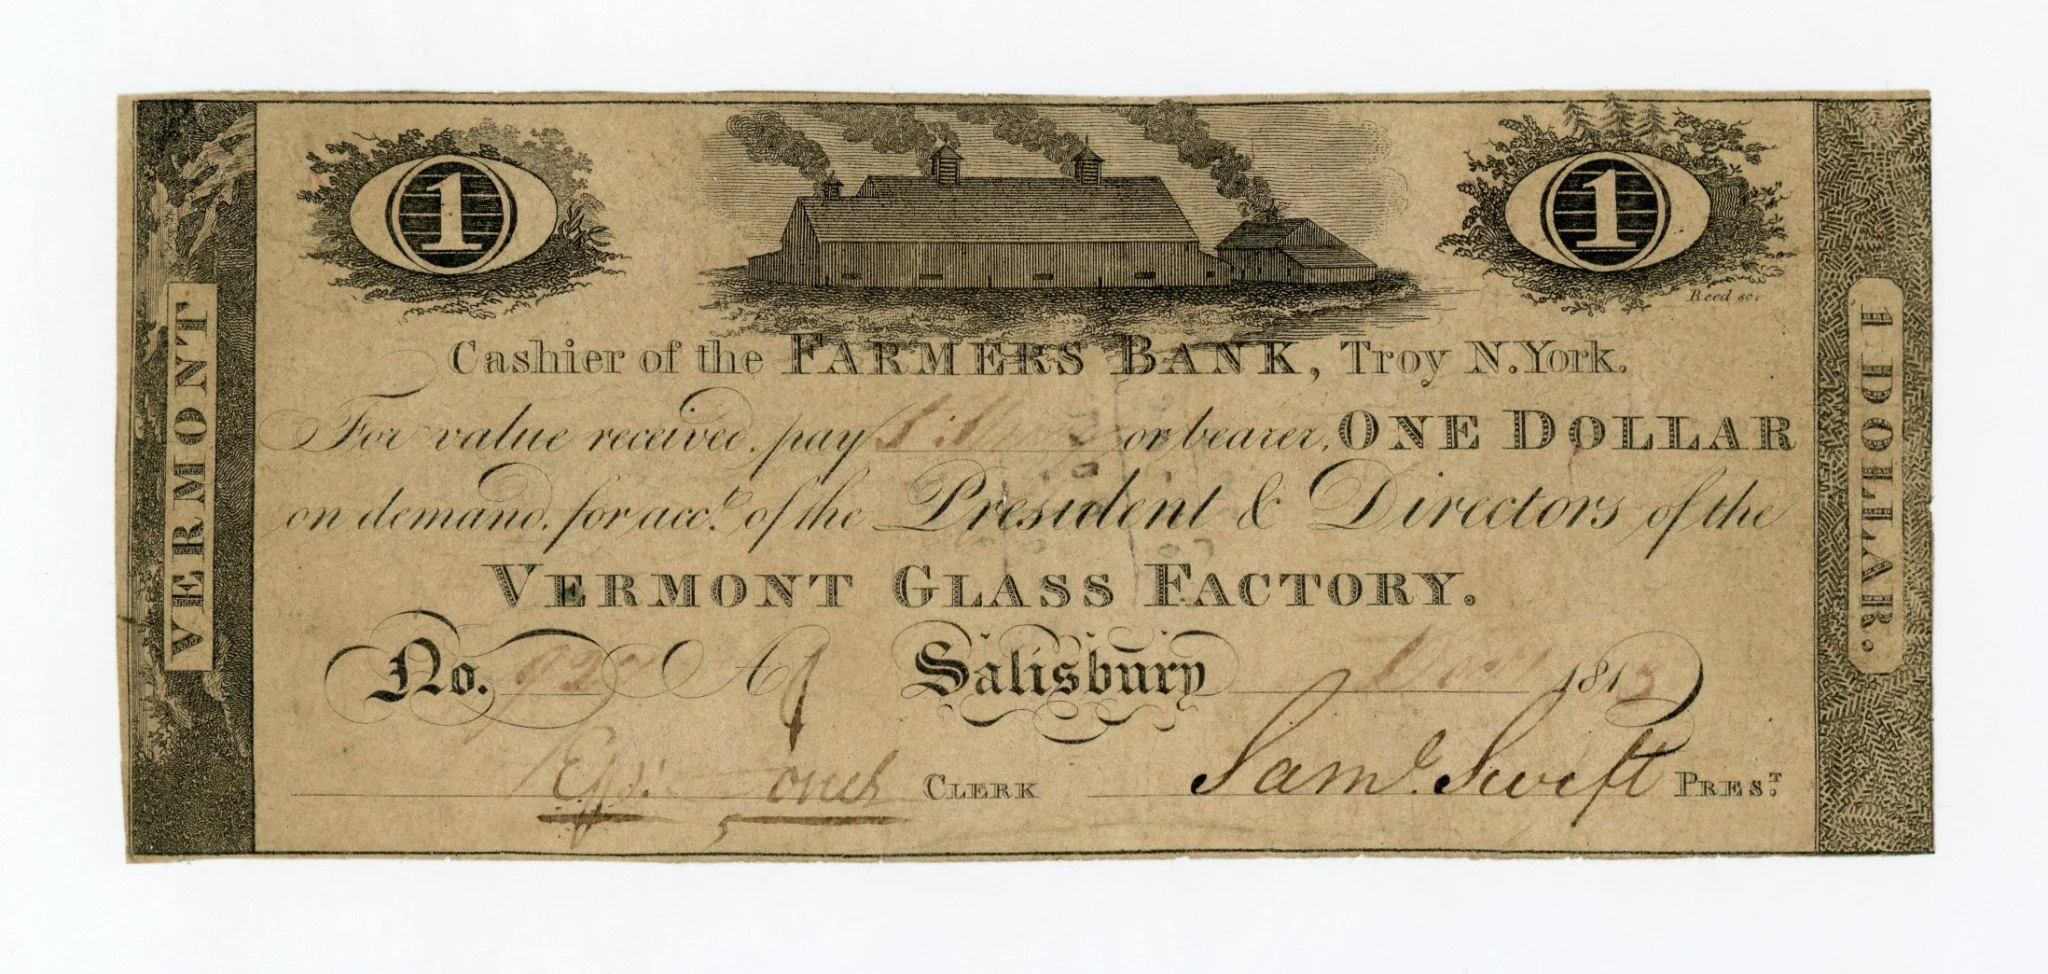 1
1
Reed sc.
VERMONT
1 DOLLAR.
Cashier of the FARMERS BANK, Troy N.York.
For value received, pay or bearer, ONE DOLLAR
on demand, for acct. of the President & Directors of the
VERMONT GLASS FACTORY.
No. A Salisbury 1813
CLERK Saml. Swift PREST.